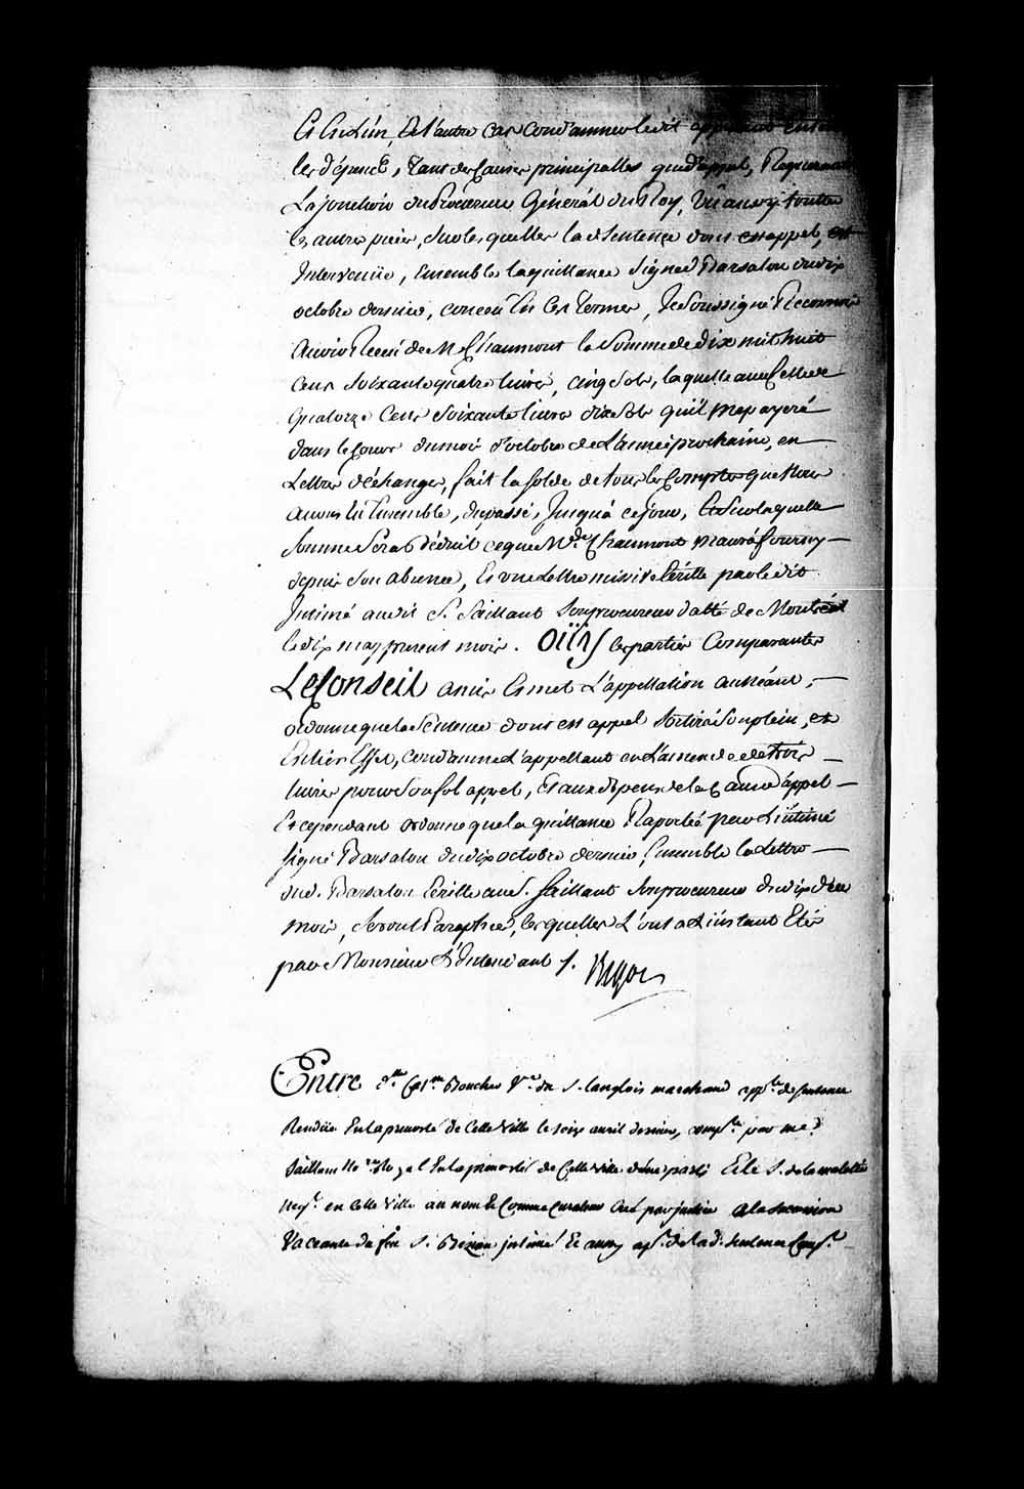 et en l'un, et l'autre cas condamner ledit appellant en tous
les dépens, tant des causes principalles que d'appel, Requerant
La jonction du Procureur Général du Roy, Vû aussy toutes
les autres pieces, sur lesquelles la de Sentence dont est appel, est
Intervenüe, Ensemble la quittance Signée Barsalou du dix
octobre dernier, conçeu En Ces termes, Je Soussigné Reconnois
Avoir Receu de M. Chaumont la Somme de dix mil huit
Cens Soixante quatre livres, cinq Sols, laquelle avec Celle de
Quatorze Cens Soixante livres dix Sols qu'il m'a payeré
dans le Cours du mois d'octobre de L'année prochaine, en
Lettres d'échanges, fait la solde de tous les Comptes que Nous
Avons Eu Ensemble, du passé, Jusqu'à ce jour, Et Sur laquelle
Somme Sera déduit ce que Md.e Chaumont m'aura fourny
depuis Son absence, Et une Lettre missive Ecritte par ledit
Intimé audit S. Saillant Son procureur datté de Montréal
le dix may present mois. Oüÿ les parties Comparantes
Le Conseil a mis Et met L'appellation au Néant,
ordonne que la Sentence dont est appel Sortira Son plein, et
Entier Effet, Condamne L'appellant en L'amende de trois
livres pour Son fol appel, Et aux dépens de la Cause d'appel
Et cependant ordonne que la quittance Raportée par L'intimé
signé Barsalou du dix octobre dernier, Ensemble la Lettre
dud. Barsalou Ecritte au S. Saillant Son procureur du dix de ce
mois, Seront Paraphées, lesquelles L'ont à L'instant Eté
par Monsieur L'Intendant /. Bigot
Entre d.lle Cat.ne Boucher V.e du S. langlois marchand app.te de sentence
Rendüe En la prevosté de Cette Ville le seize avril dernier, comp.te par me
Saillant No.re Royal En la prevosté de Cette Ville d'une part; Et le S. de la malotie
neg.t en Cette Ville au nom Et Comme Curateur Créé par justice a la succession
Vacante de feu S. intimé Et aussy ap.t de lad. sentence Comp.t